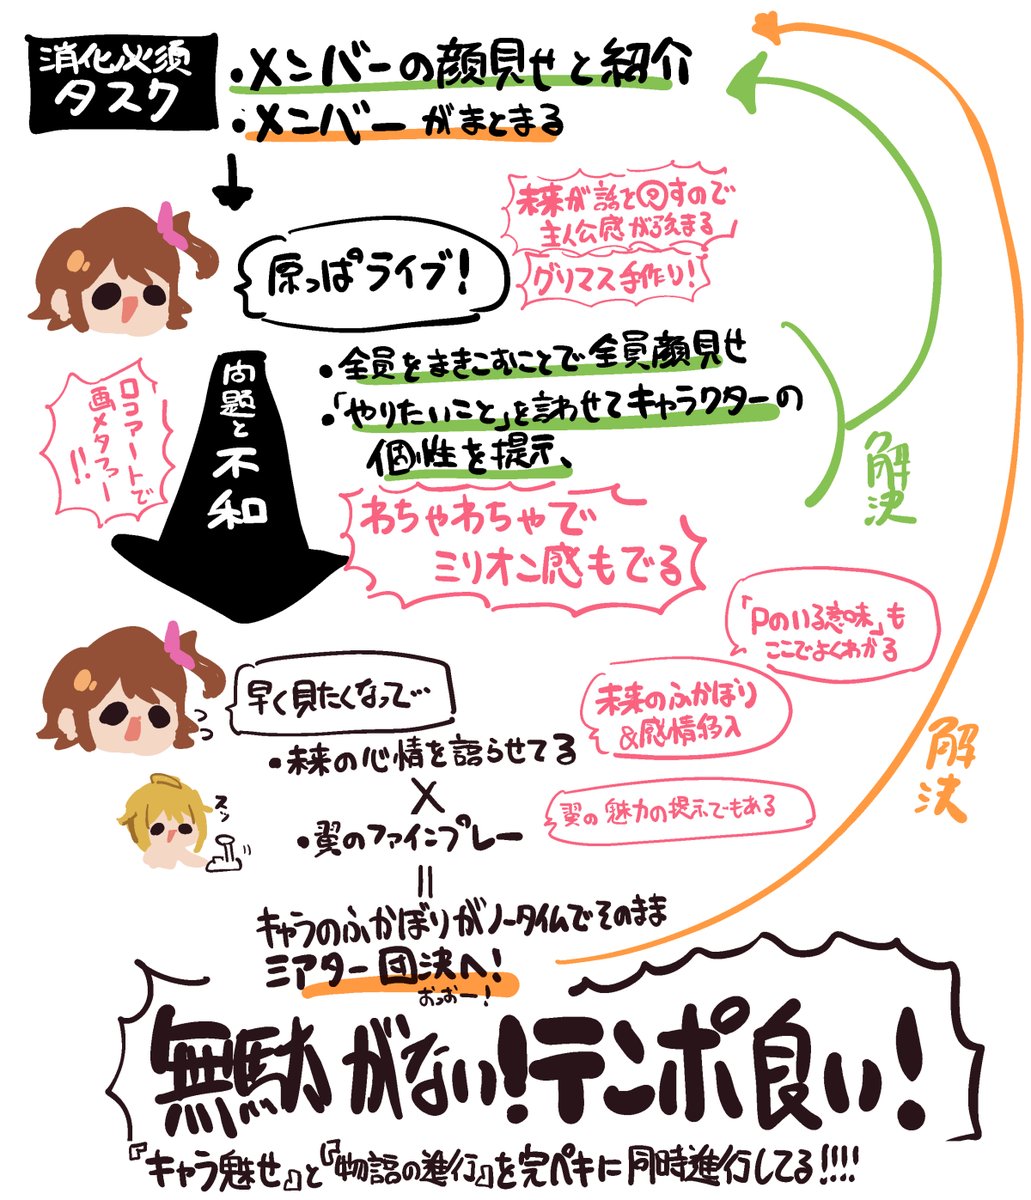 消化必須
タスク
・メンバーの顔見せと紹介
・メンバーがまとまる
原っぱライブ!
未来が話を回すので
主人公感が強まる
グリマス手作り!
問題と不和
ロコアートで
画メタファー
!!
・全員をまきこむことで全員顔見せ
・「やりたいこと」を言わせてキャラクターの
個性を提示、
わちゃわちゃで
ミリオン感もでる
解決
早く見たくなって…
・未来の心情を語らせてる
×
・翼のファインプレー
スッ
「Pのいる意味」も
ここでよくわかる
未来のふかぼり
&感情移入
翼の魅力の提示でもある
解決
=
キャラのふかぼりがノータイムでそのまま
ミアター団決へ!
おっおー!
無駄がない!テンポ良い!
『キャラ魅せ』と『物語の進行』を完ペキに同時進行してる!!!!